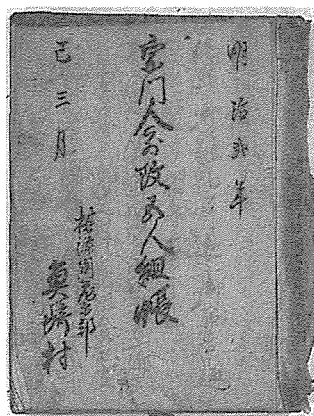 明治弐年
宗門人別改五人組帳
巳三月
摂津国菟原郡
魚崎村